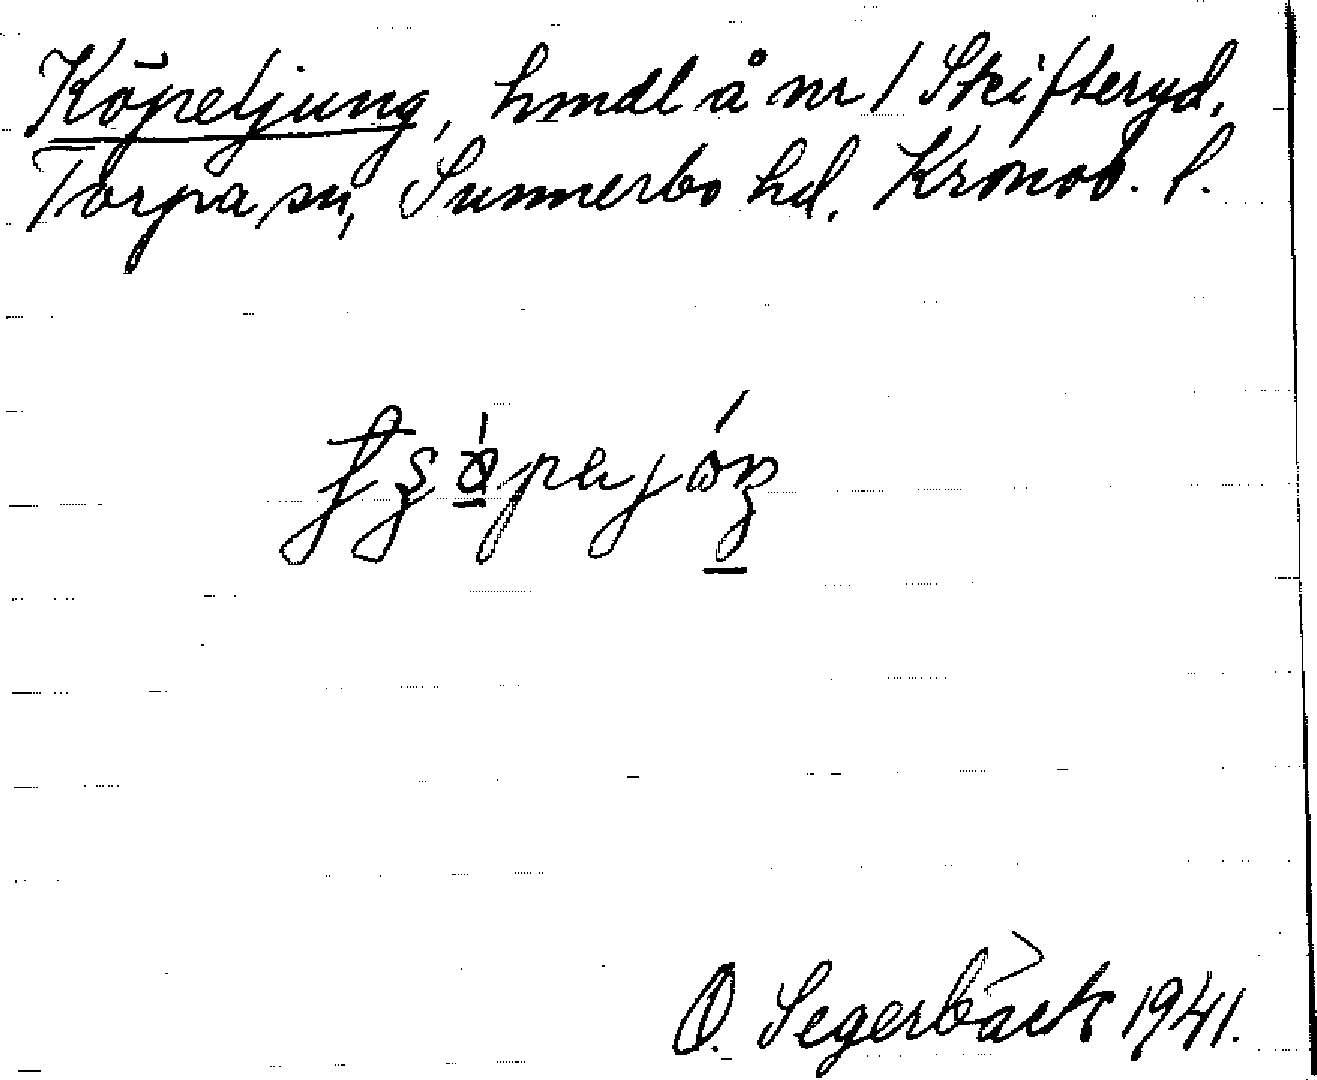 Köpeljung, hmdl å nr 1 Skifteryd,
Torpa sn, Sunnerbo hd. Kronob. l.
O. Segerbäck 1941.